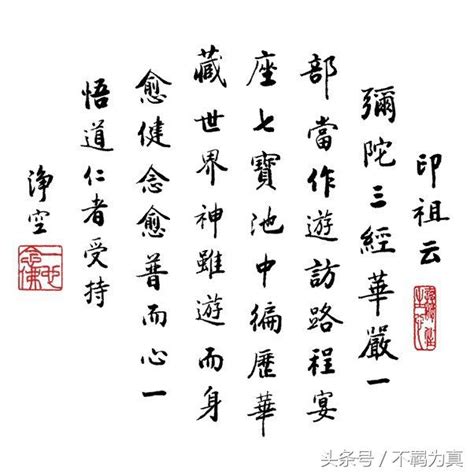 印祖云
彌陀三經華嚴一
部當作遊訪路程宴
座七寶池中徧歷華
藏世界神雖遊而身
愈健念愈普而心一
悟道仁者受持
淨空
一心念佛
头条号 / 不羁为真